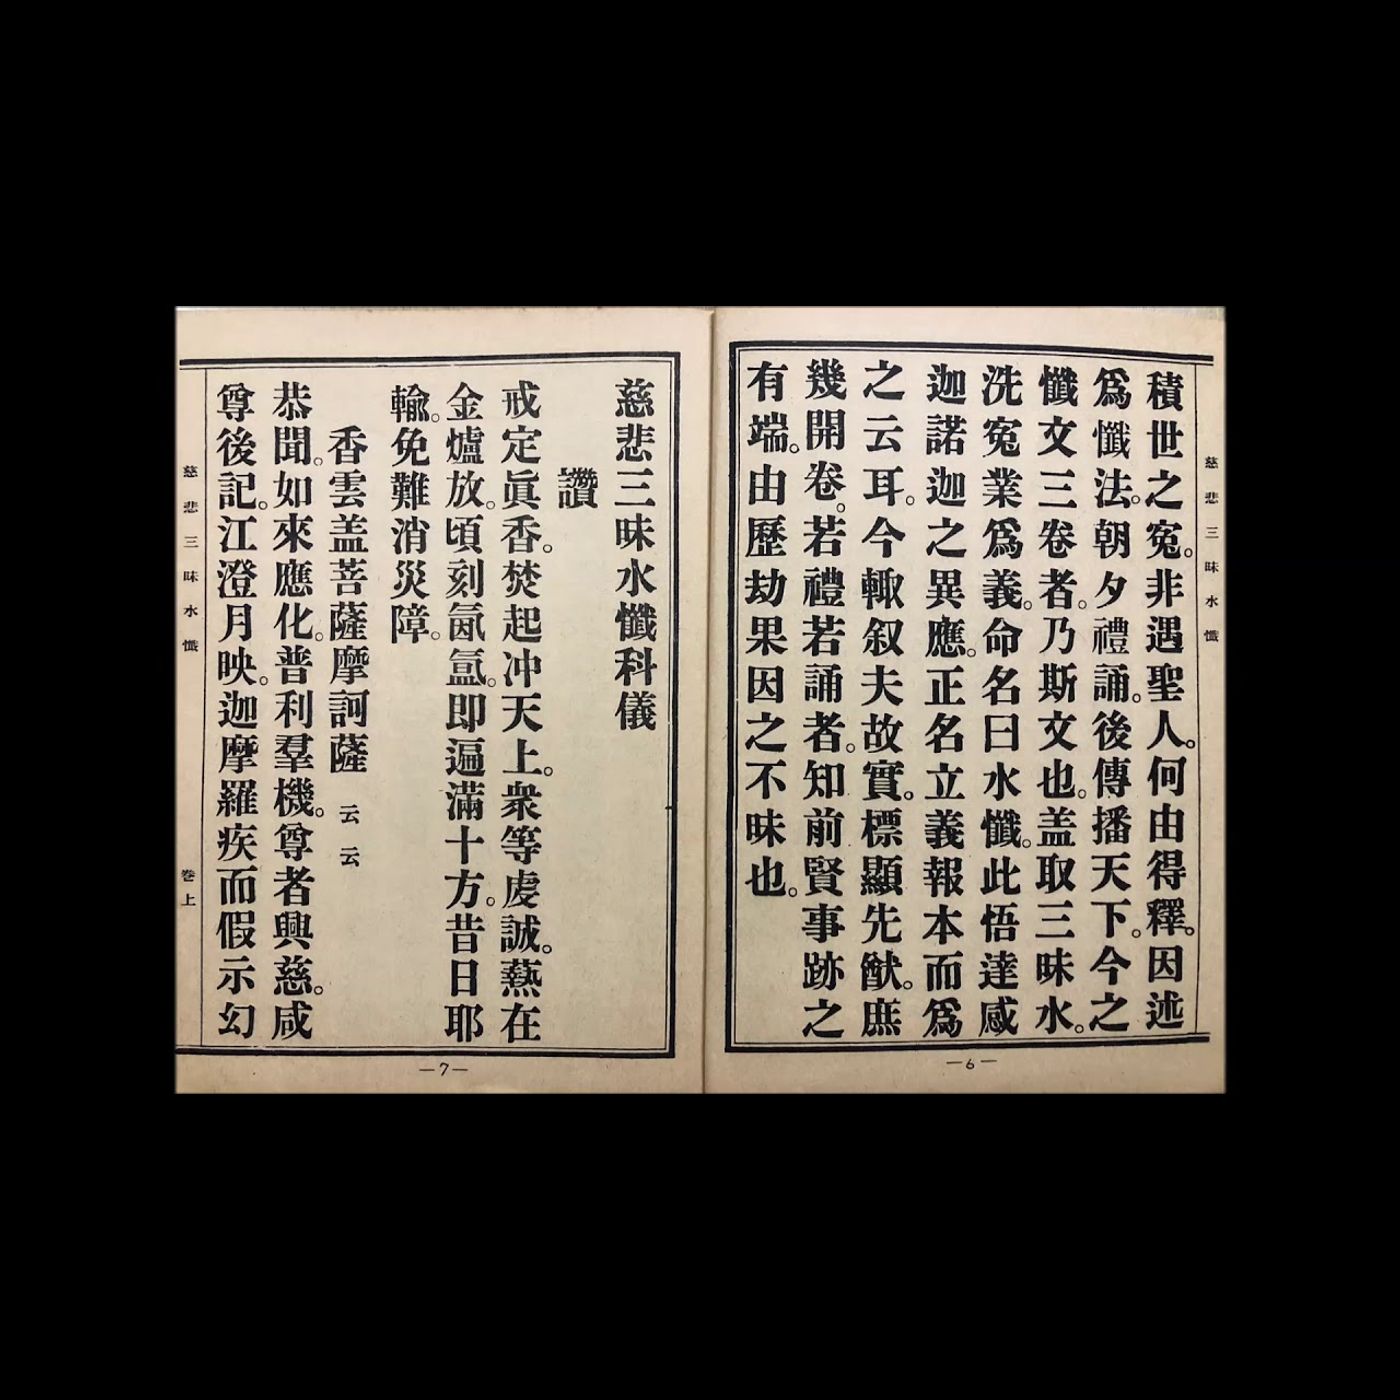 慈悲三昧水懺
積世之寃。非遇聖人。何由得釋。因述
爲懺法。朝夕禮誦。後傳播天下。今之
懺文三卷者。乃斯文也。盖取三昧水。
洗寃業爲義。命名曰水懺。此悟達感
迦諾迦之異應。正名立義報本而爲
之云耳。今輙叙夫故實。標顯先猷。庶
幾開卷。若禮若誦者。知前賢事跡之
有端。由歷劫果因之不昧也。
—6—
慈悲三昧水懺科儀
讚
戒定眞香。焚起冲天上。衆等虔誠。爇在
金爐放。頃刻氤氳。即遍滿十方。昔日耶
輸。免難消災障。
香雲盖菩薩摩訶薩 云云
恭聞。如來應化。普利羣機。尊者興慈。咸
尊後記。江澄月映。迦摩羅疾而假示幻
慈悲三昧水懺 卷上
—7—